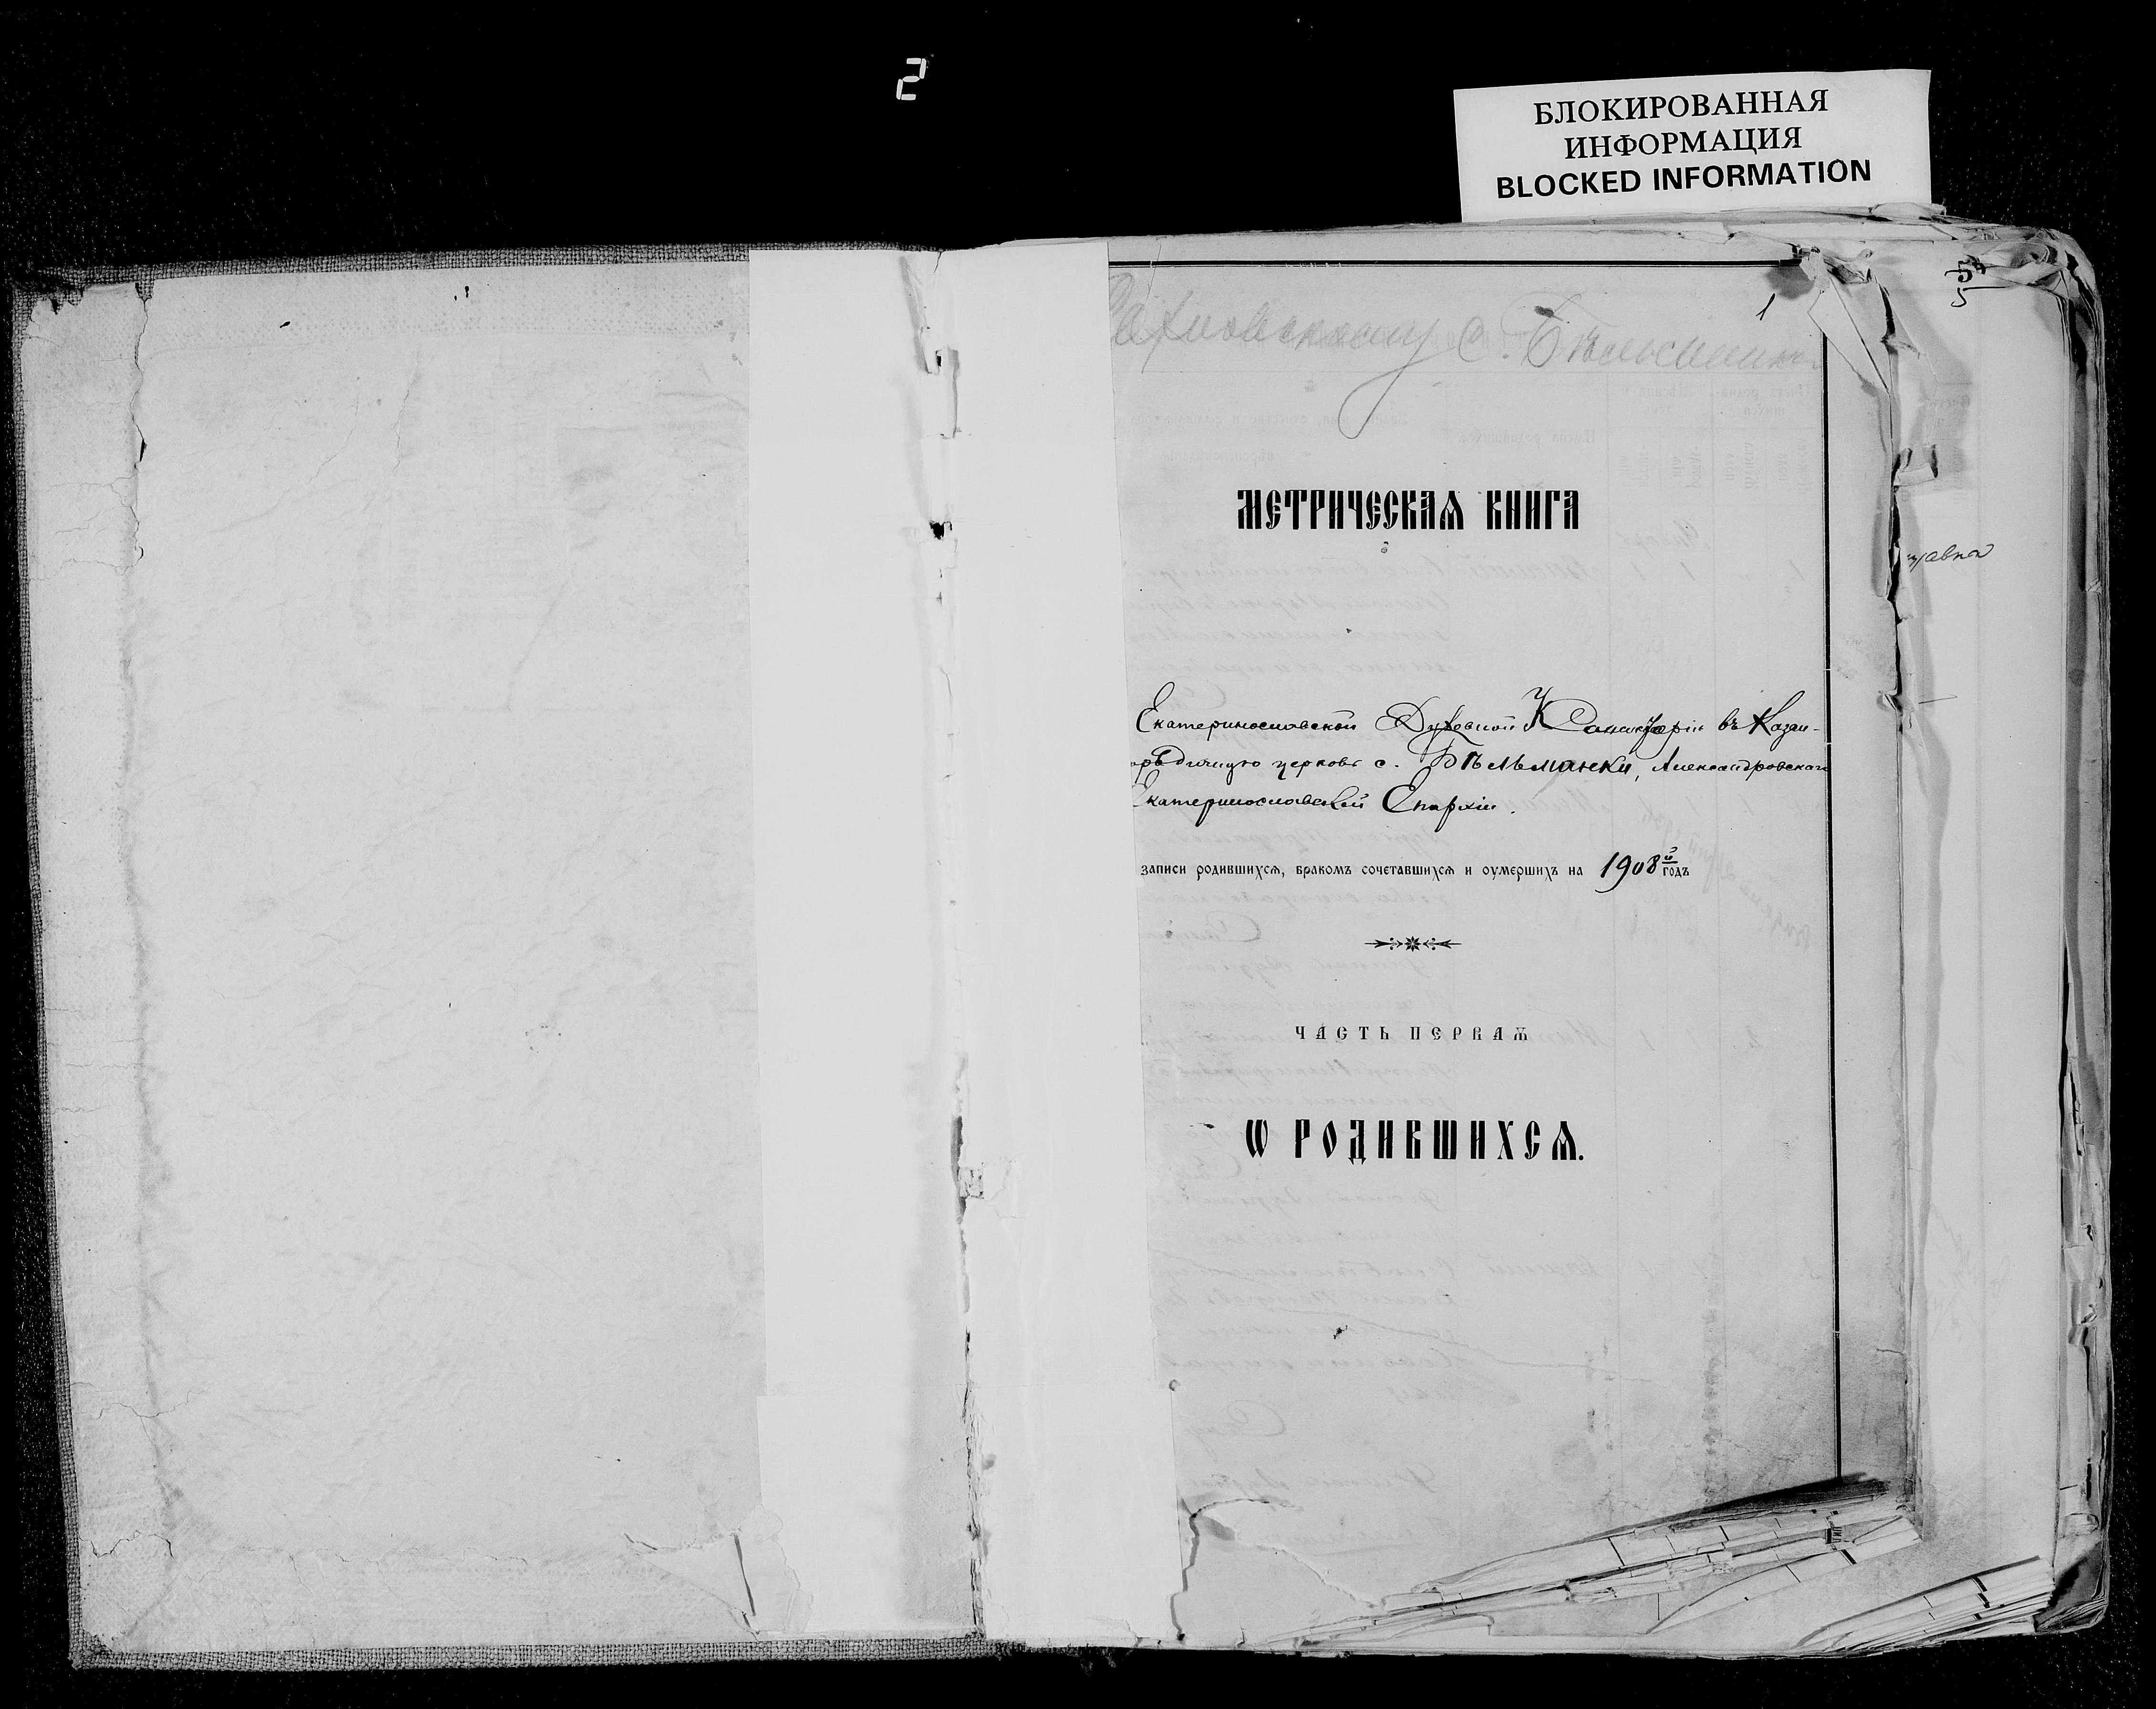 2
БЛОКИРОВАННАЯ
ИНФОРМАЦИЯ
BLOCKED INFORMATION
5
1
с. Бѣльманки
МЕТРИЧЕСКАѦ КНИГА
Екатеринославской Духовной Консисторіи въ Казан-
церковь с. Бѣльманки, Александровскаго
Екатеринославской Епархіи.
записи родившихсѧ, бракомъ сочетавшихсѧ и оумершихъ на 1908й годъ
ЧАСТЬ ПЕРВАѦ
Ѡ РОДИВШИХСѦ.